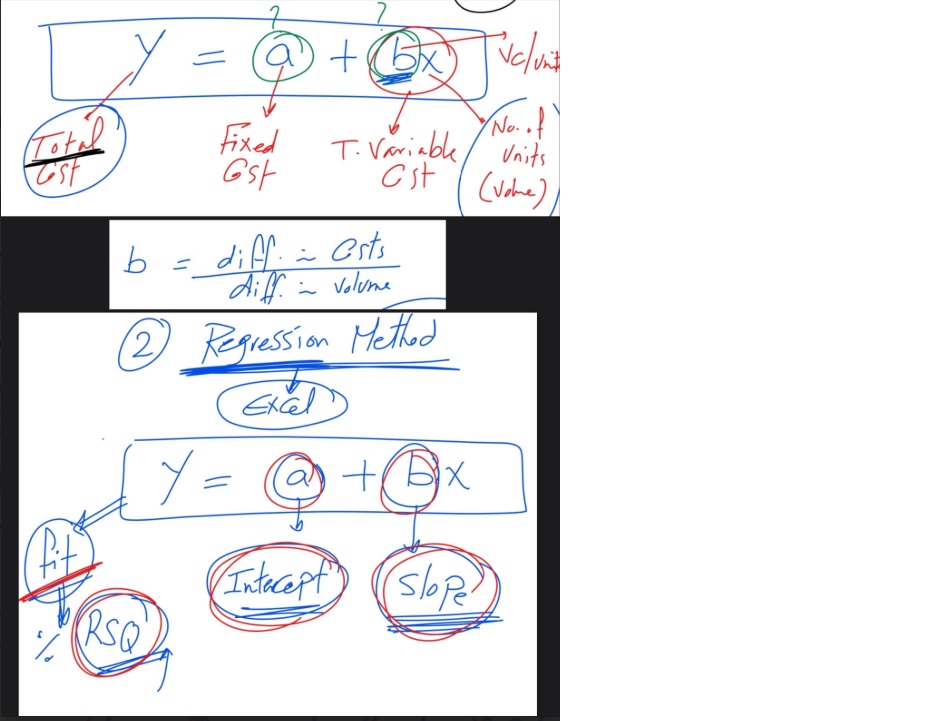 ? ?
y = a + bx
VC/unit
Total Cost
Fixed Cost
T. Variable Cost
No. of Units (Volume)
b = diff. in Costs
diff. in volume
② Regression Method
Excel
y = a + bx
fit
Intercept
Slope
% RSQ